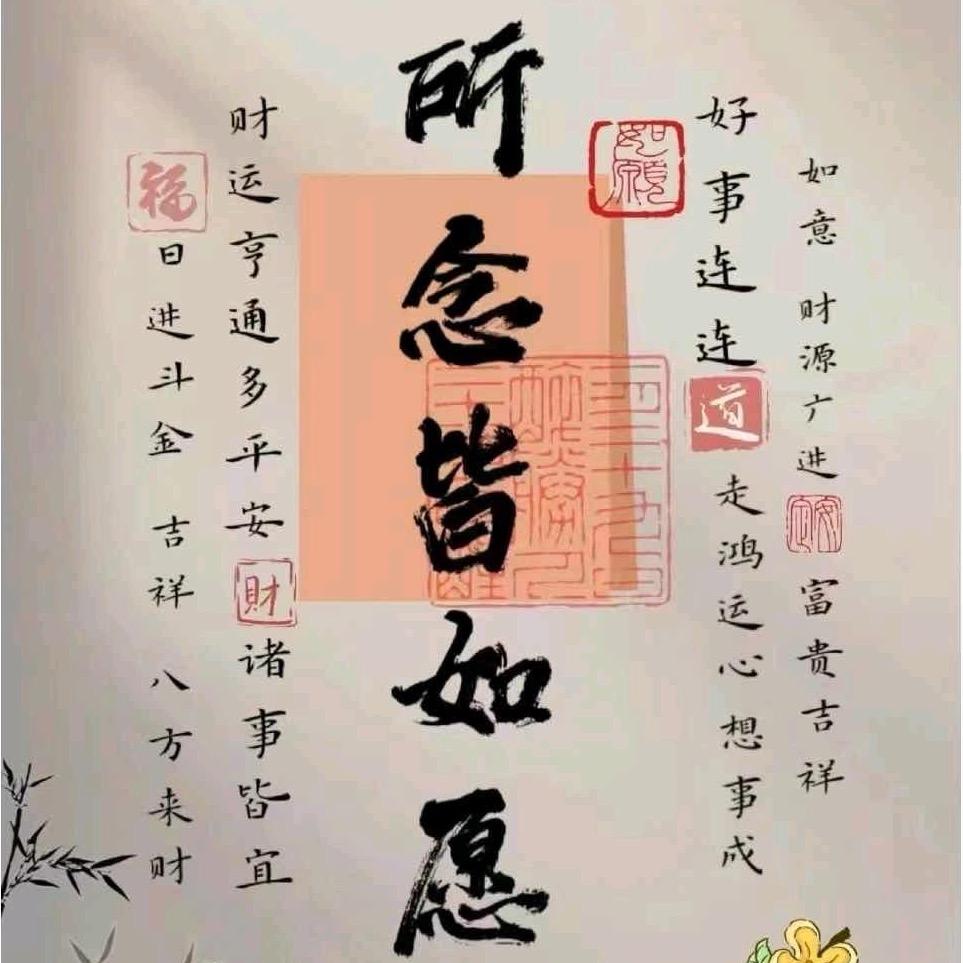 如意 财源广进 安定 富贵吉祥
好事连连 道 走鸿运心想事成
如愿
所念皆如愿
财运亨通多平安 財 诸事皆宜
福 日进斗金 吉祥 八方来财